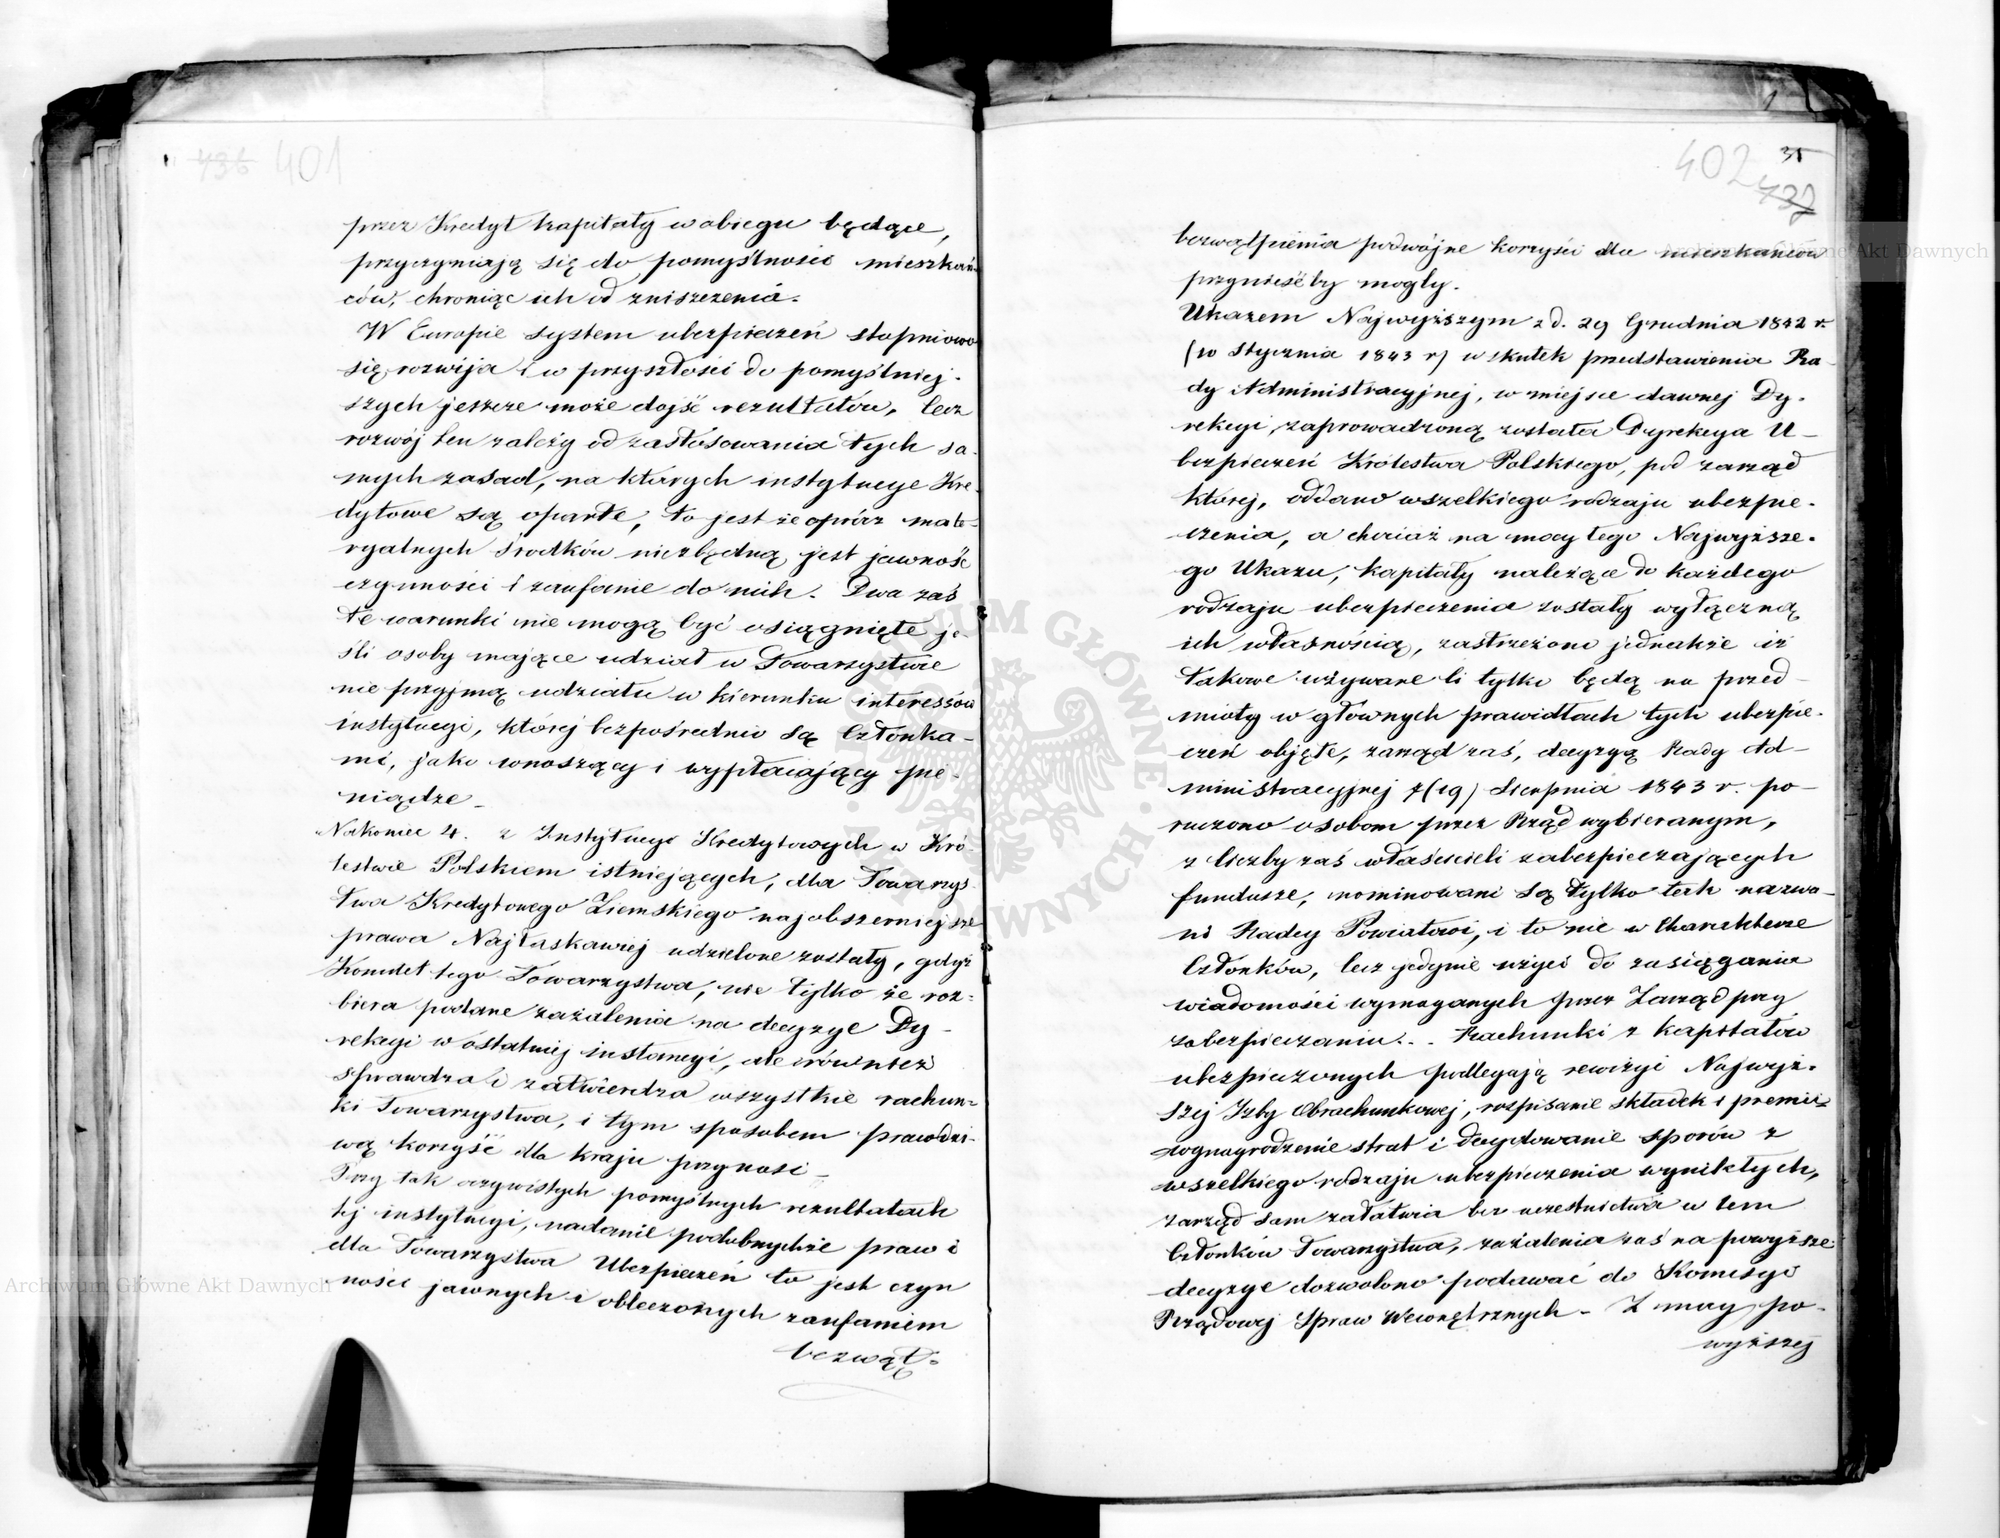 436 401
przez Kredyt kapitały w obiegu będące,
przyczyniają się do pomyślności mieszkań-
ców, chroniąc ich od zniszczenia.
W Europie system ubezpieczeń stopniowo
się rozwija i w przyszłości do pomyślniej-
szych jeszcze może dojść rezultatów, lecz
rozwój ten zależy od zastosowania tych sa-
mych zasad, na których instytucye Kre-
dytowe są oparte, to jest że oprócz mate-
ryalnych środków niezbędną jest jawność
czynności i zaufanie do nich. Dwa zaś
te warunki nie mogą być osiągnięte je-
śli osoby mające udział w Towarzystwie
nie przyjmą udziału w kierunku interessów
instytucyi, której bezpośrednio są Członka-
mi, jako wnoszący i wypłacający pie-
niądze –
Nakoniec 4. z Instytucyi Kredytowych w Kró-
lestwie Polskiem istniejących, dla Towarzys-
twa Kredytowego Ziemskiego najobszerniejsze
prawa Najłaskawiej udzielone zostały, gdyż
Komitet tego Towarzystwa, nie tylko że roz-
biera podane zażalenia na decyzye Dy-
rekcyi w ostatniej instancyi, ale również
sprawdza i zatwierdza wszystkie rachun-
ki Towarzystwa, i tym sposobem prawdzi-
wą korzyść dla kraju przynosi –
Przy tak oczywistych pomyślnych rezultatach
tej instytucyi, nadanie podobnychże praw i
dla Towarzystwa Ubezpieczeń to jest czyn
ności jawnych i obleczonych zaufaniem
bezwąt-
402 35
437
bezwątpienia podwójne korzyści dla mieszkańców
przynieśćby mogły.
Ukazem Najwyższym z d. 29 Grudnia 1842 r.
(10 Stycznia 1843 r) w skutek przedstawienia Ra-
dy Administracyjnej, w miejsce dawnej Dy-
rekcyi, zaprowadzoną została Dyrekcya U-
bezpieczeń Królestwa Polskiego, pod zarząd
której, oddano wszelkiego rodzaju ubezpie-
czenia, a chociaż na mocy tego Najwyższe-
go Ukazu, kapitały należące do każdego
rodzaju ubezpieczenia zostały wyłączną
ich własnością, zastrzeżono jednakże iż
takowe używane li tylko będą na przed-
mioty w głównych prawidłach tych ubezpie-
czeń objęte, zarząd zaś, decyzyą Rady Ad-
ministracyjnej 7 (19) Sierpnia 1843 r. po-
ruczono osobom przez Rząd wybieranym,
z liczby zaś właścicieli zabezpieczających
fundusze, nominowani są tylko tak nazwa-
ni Radcy Powiatowi, i to nie w Charakterze
Członków, lecz jedynie użyci do zasiągania
wiadomości wymaganych przez Zarząd przy
zabezpieczaniu. – Rachunki z kapitałów
ubezpieczonych podlegają rewizyi Najwyż-
szej Izby Obrachunkowej, rozpisanie składek i premii
wynagrodzenie strat i decydowanie sporów z
wszelkiego rodzaju ubezpieczenia wynikłych,
zarząd sam załatwia bez uczestnictwa w tem
Członków Towarzystwa, zażalenia zaś na powyższe
decyzye dozwolono podawać do Komisyi
Rządowej Spraw Wewnętrznych – Z mocy po-
wyższej
Archiwum Główne Akt Dawnych
Archiwum Główne Akt Dawnych